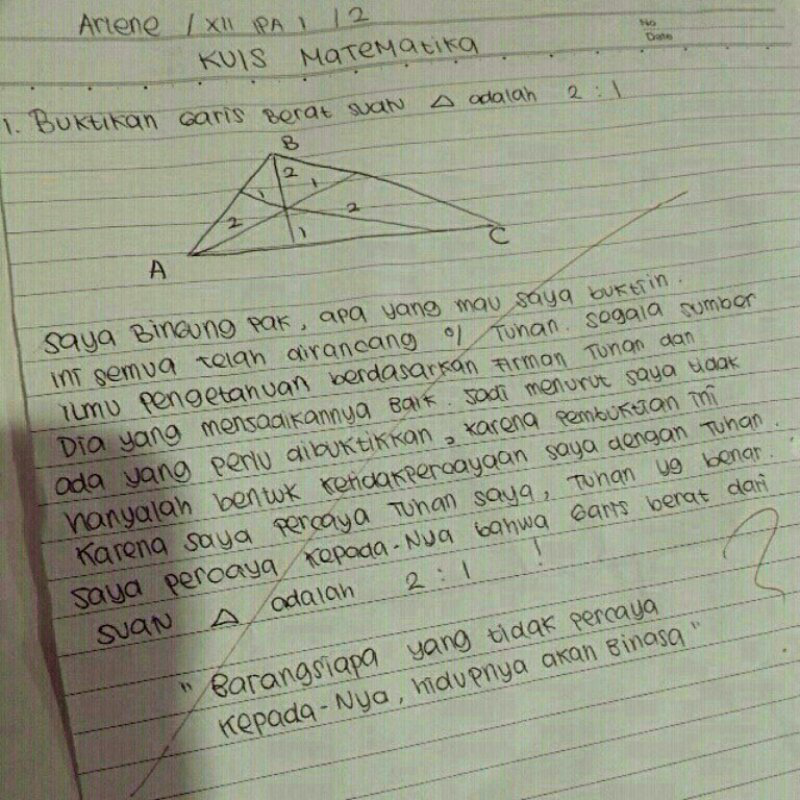 Arlene / XII IPA 1 / 2
No
Date
KUIS MATEMATIKA
1. BUKTIKAN GARIS BERAT SUATU △ adalah 2 : 1
B
2 1
1
2 2
1
A C
Saya Bingung pak, apa yang mau saya buktiin.
ini semua telah dirancang o/ Tuhan. Segala sumber
ilmu pengetahuan berdasarkan Firman Tuhan dan
Dia yang menjadikannya Baik. Jadi menurut saya tidak
ada yang perlu dibuktikkan, karena pembuktian ini
hanyalah bentuk ketidakpercayaan saya dengan Tuhan.
Karena saya percaya Tuhan saya, Tuhan yg benar.
saya percaya kepada-Nya bahwa Garis berat dari
SUATU △ adalah 2 : 1 !
"Barangsiapa yang tidak percaya
kepada-Nya, hidupnya akan Binasa"
?